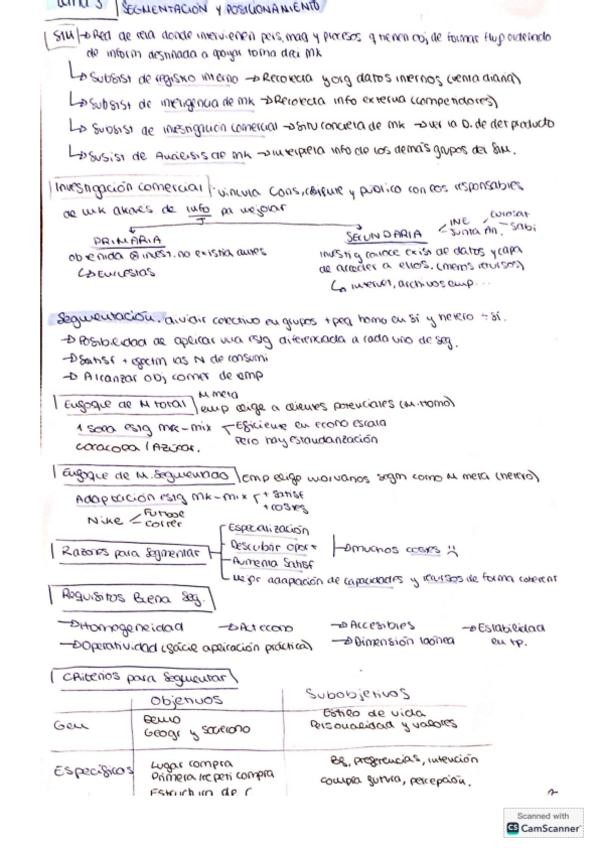 SEGMENTACIÓN Y POSICIONAMIENTO
SIM → Red de rela donde intervienen pers, maq y procesos q tienen obj de formar flujo ordenado
de inform destinada a apoyar toma dec mk
↳ Subsist de registro interno → Recolecta y org datos internos (venta diaria)
↳ Subsist de inteligencia de mk → Recolecta info externa (competidores)
↳ Subsist de investigación comercial → Situ concreta de mk → ver la D. de det producto
↳ Susist de Analisis de mk → interpreta info de los demás grupos del Sim.
Investigación comercial: vincula Cons, cliente y publico con los responsables
de mk a través de info pa mejorar
PRIMARIA
obtenida invest. no existia antes
↳ Encuestas
SECUNDARIA
INE
Junta An.
investig conoce exist de datos y capa
de acceder a ellos. (menos recursos)
↳ internet, archivos emp...
Segmentación. dividir colectivo en grupos + peq homo en sí y hetero ÷ sí.
→ Posibilidad de aplicar una estg diferenciada a cada uno de seg.
→ Satisf + las N de consumi
→ Alcanzar obj comer de emp
Enfoque de M total
M meta
emp dirige a clientes potenciales (M. Homo)
1 sola estg mk-mix
Eficiente en econo escala
Pero hay estandarización
cocacola / Azúcar.
Enfoque de M. Segmentado emp dirige varios segm como M meta (hetero)
Adaptación estg mk-mix
+ satisf
+ costes
Nike
Furbo
correr
Razones para segmentar
Especialización
Descubrir oport
Aumenta Satisf
Mejor adaptación de capacidades y recursos de forma coherent
→ muchos costes
Requisitos Buena Seg.
→ Homogeneidad
→ Act econo
→ Accesibles
→ Estabilidad
en tp.
→ Operatividad (fácil aplicación práctica)
→ Dimensión idónea
Criterios para Segmentar
Objetivos
Subobjetivos
Gen
Demo
Geogr y socioeono
Estilo de vida
Personalidad y valores
Específicos
Lugar compra
Primera /repeti compra
BB, preferencias, intención
compra futura, percepción.
Scanned with
CS CamScanner